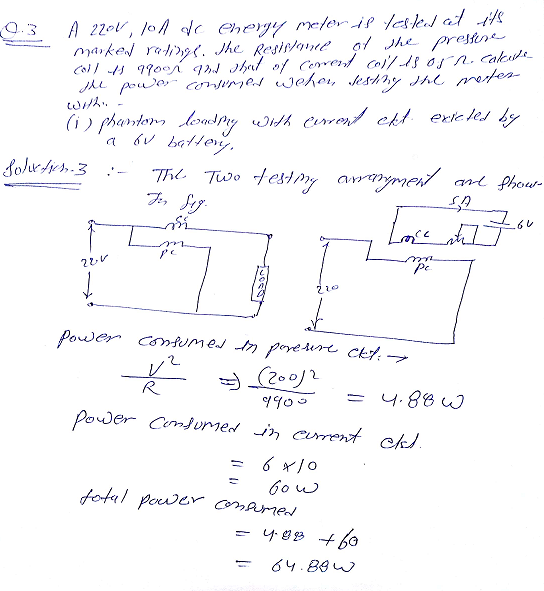 Q.3 A 220V, 10A dc energy meter is tested at its
marked ratings. The Resistance of the pressure
coil is 9900Ω and that of current coil is 0.5 Ω. calculate
the power consumed when testing the meter
with:-
(i) phantom loading with current ckt. excited by
a 6V battery.
Solution.3 :- The Two testing arrangment are Show-
In fig.
5A
6V
CC
PC
220V
LOAD
CC
PC
220
Power consumed in pressure ckt. →
V² / R ⇒ (200)² / 9900 = 4.88 W
Power Consumed in current ckt.
= 6 x 10
= 60 W
total power consumed
= 4.88 + 60
= 64.88 W